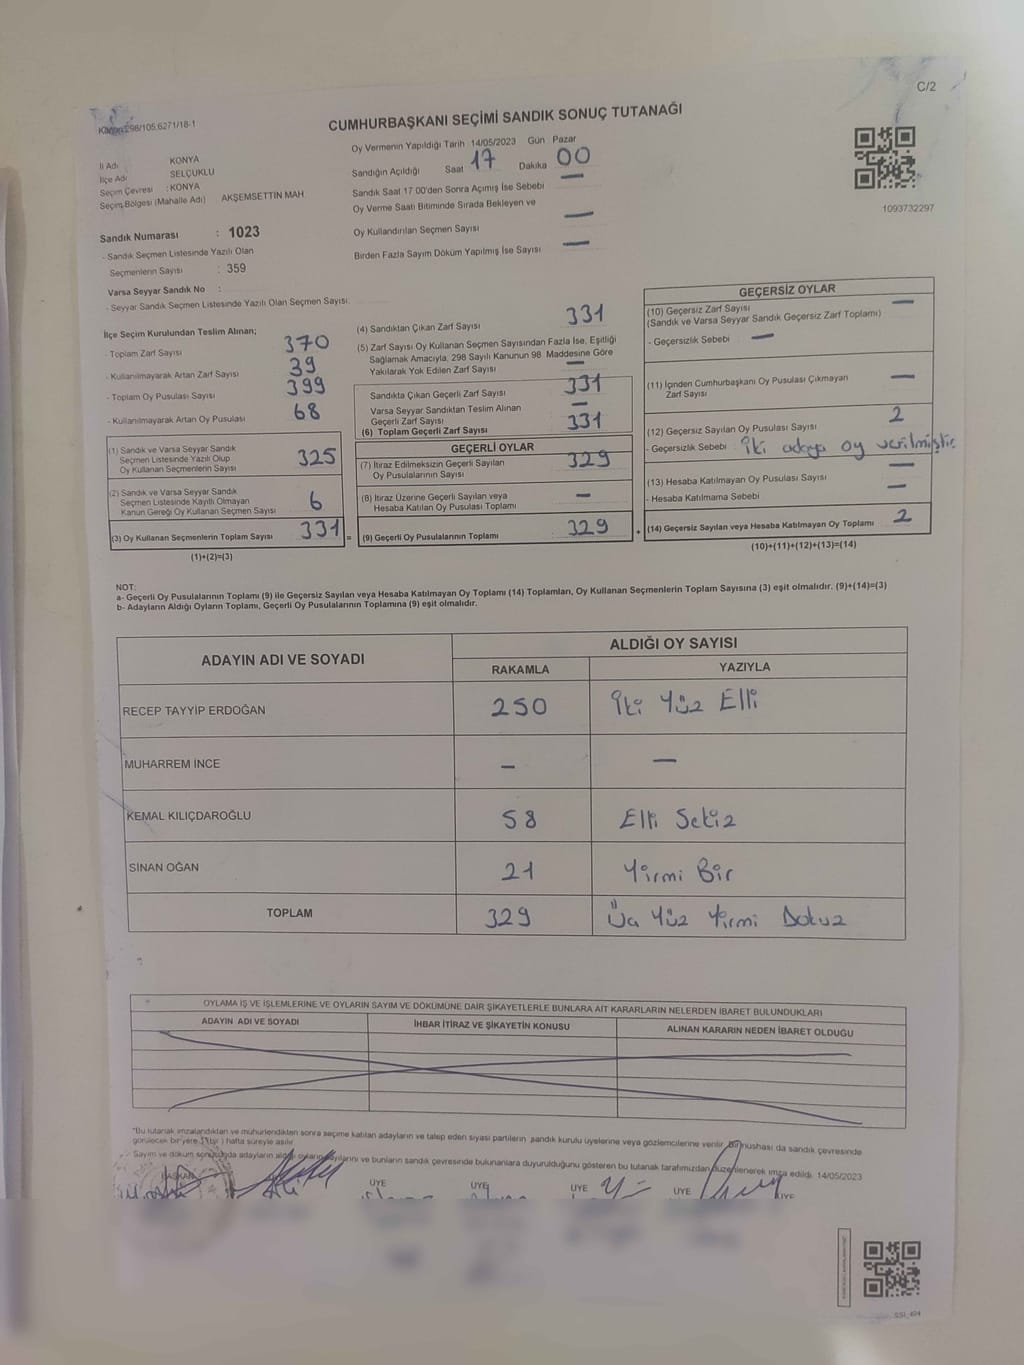 C/2
Kanun:298/105,6271/18-1
CUMHURBAŞKANI SEÇİMİ SANDIK SONUÇ TUTANAĞI
İl Adı : KONYA
İlçe Adı : SELÇUKLU
Seçim Çevresi : KONYA
Seçim Bölgesi (Mahalle Adı) AKŞEMSETTIN MAH.
Oy Vermenin Yapıldığı Tarih 14/05/2023 Gün Pazar
Sandığın Açıldığı Saat 17 Dakika 00
Sandık Saat 17:00'den Sonra Açımış İse Sebebi —
Oy Verme Saati Bitiminde Sırada Bekleyen ve
Oy Kullandırılan Seçmen Sayısı —
Birden Fazla Sayım Döküm Yapılmış İse Sayısı —
1093732297
Sandık Numarası : 1023
- Sandık Seçmen Listesinde Yazılı Olan
Seçmenlerin Sayısı : 359
Varsa Seyyar Sandık No :
- Seyyar Sandık Seçmen Listesinde Yazılı Olan Seçmen Sayısı:
İlçe Seçim Kurulundan Teslim Alınan;
- Toplam Zarf Sayısı 370
- Kullanılmayarak Artan Zarf Sayısı 39
- Toplam Oy Pusulası Sayısı 399
- Kullanılmayarak Artan Oy Pusulası 68
(1) Sandık ve Varsa Seyyar Sandık
Seçmen Listesinde Yazılı Olup
Oy Kullanan Seçmenlerin Sayısı 325
(2) Sandık ve Varsa Seyyar Sandık
Seçmen Listesinde Kayıtlı Olmayan
Kanun Gereği Oy Kullanan Seçmen Sayısı 6
(3) Oy Kullanan Seçmenlerin Toplam Sayısı 331 =
(1)+(2)=(3)
(4) Sandıktan Çıkan Zarf Sayısı 331
(5) Zarf Sayısı Oy Kullanan Seçmen Sayısından Fazla İse, Eşitliği
Sağlamak Amacıyla, 298 Sayılı Kanunun 98. Maddesine Göre
Yakılarak Yok Edilen Zarf Sayısı —
Sandıkta Çıkan Geçerli Zarf Sayısı 331
Varsa Seyyar Sandıktan Teslim Alınan
Geçerli Zarf Sayısı —
(6) Toplam Geçerli Zarf Sayısı 331
GEÇERLİ OYLAR
(7) İtiraz Edilmeksizin Geçerli Sayılan
Oy Pusulalarının Sayısı 329
(8) İtiraz Üzerine Geçerli Sayılan veya
Hesaba Katılan Oy Pusulası Toplamı —
(9) Geçerli Oy Pusulalarının Toplamı 329 +
GEÇERSİZ OYLAR
(10) Geçersiz Zarf Sayısı —
(Sandık ve Varsa Seyyar Sandık Geçersiz Zarf Toplamı)
- Geçersizlik Sebebi : —
(11) İçinden Cumhurbaşkanı Oy Pusulası Çıkmayan —
Zarf Sayısı
(12) Geçersiz Sayılan Oy Pusulası Sayısı 2
- Geçersizlik Sebebi : iki adaya oy verilmiştir
(13) Hesaba Katılmayan Oy Pusulası Sayısı —
- Hesaba Katılmama Sebebi —
(14) Geçersiz Sayılan veya Hesaba Katılmayan Oy Toplamı 2
(10)+(11)+(12)+(13)=(14)
NOT:
a- Geçerli Oy Pusulalarının Toplamı (9) ile Geçersiz Sayılan veya Hesaba Katılmayan Oy Toplamı (14) Toplamları, Oy Kullanan Seçmenlerin Toplam Sayısına (3) eşit olmalıdır. (9)+(14)=(3)
b- Adayların Aldığı Oyların Toplamı, Geçerli Oy Pusulalarının Toplamına (9) eşit olmalıdır.
ADAYIN ADI VE SOYADI ALDIĞI OY SAYISI
RAKAMLA YAZIYLA
RECEP TAYYİP ERDOĞAN 250 İki Yüz Elli
MUHARREM İNCE — —
KEMAL KILIÇDAROĞLU 58 Elli Sekiz
SİNAN OĞAN 21 Yirmi Bir
TOPLAM 329 Üç Yüz Yirmi Dokuz
OYLAMA İŞ VE İŞLEMLERİNE VE OYLARIN SAYIM VE DÖKÜMÜNE DAİR ŞİKAYETLERLE BUNLARA AİT KARARLARIN NELERDEN İBARET BULUNDUKLARI
ADAYIN ADI VE SOYADI İHBAR İTİRAZ VE ŞİKAYETİN KONUSU ALINAN KARARIN NEDEN İBARET OLDUĞU
"Bu tutanak imzalandıktan ve mühürlendikten sonra seçime katılan adayların ve talep eden siyasi partilerin sandık kurulu üyelerine veya gözlemcilerine verilir. Bir nüshası da sandık çevresinde
görülecek bir yere 1 (bir) hafta süreyle asılır.
- Sayım ve döküm sonucunda adayların aldığı oyların sayılarını ve bunların sandık çevresinde bulunanlara duyurulduğunu gösteren bu tutanak tarafımızdan düzenlenerek imza edildi. 14/05/2023
BAŞKAN ÜYE ÜYE ÜYE ÜYE ÜYE